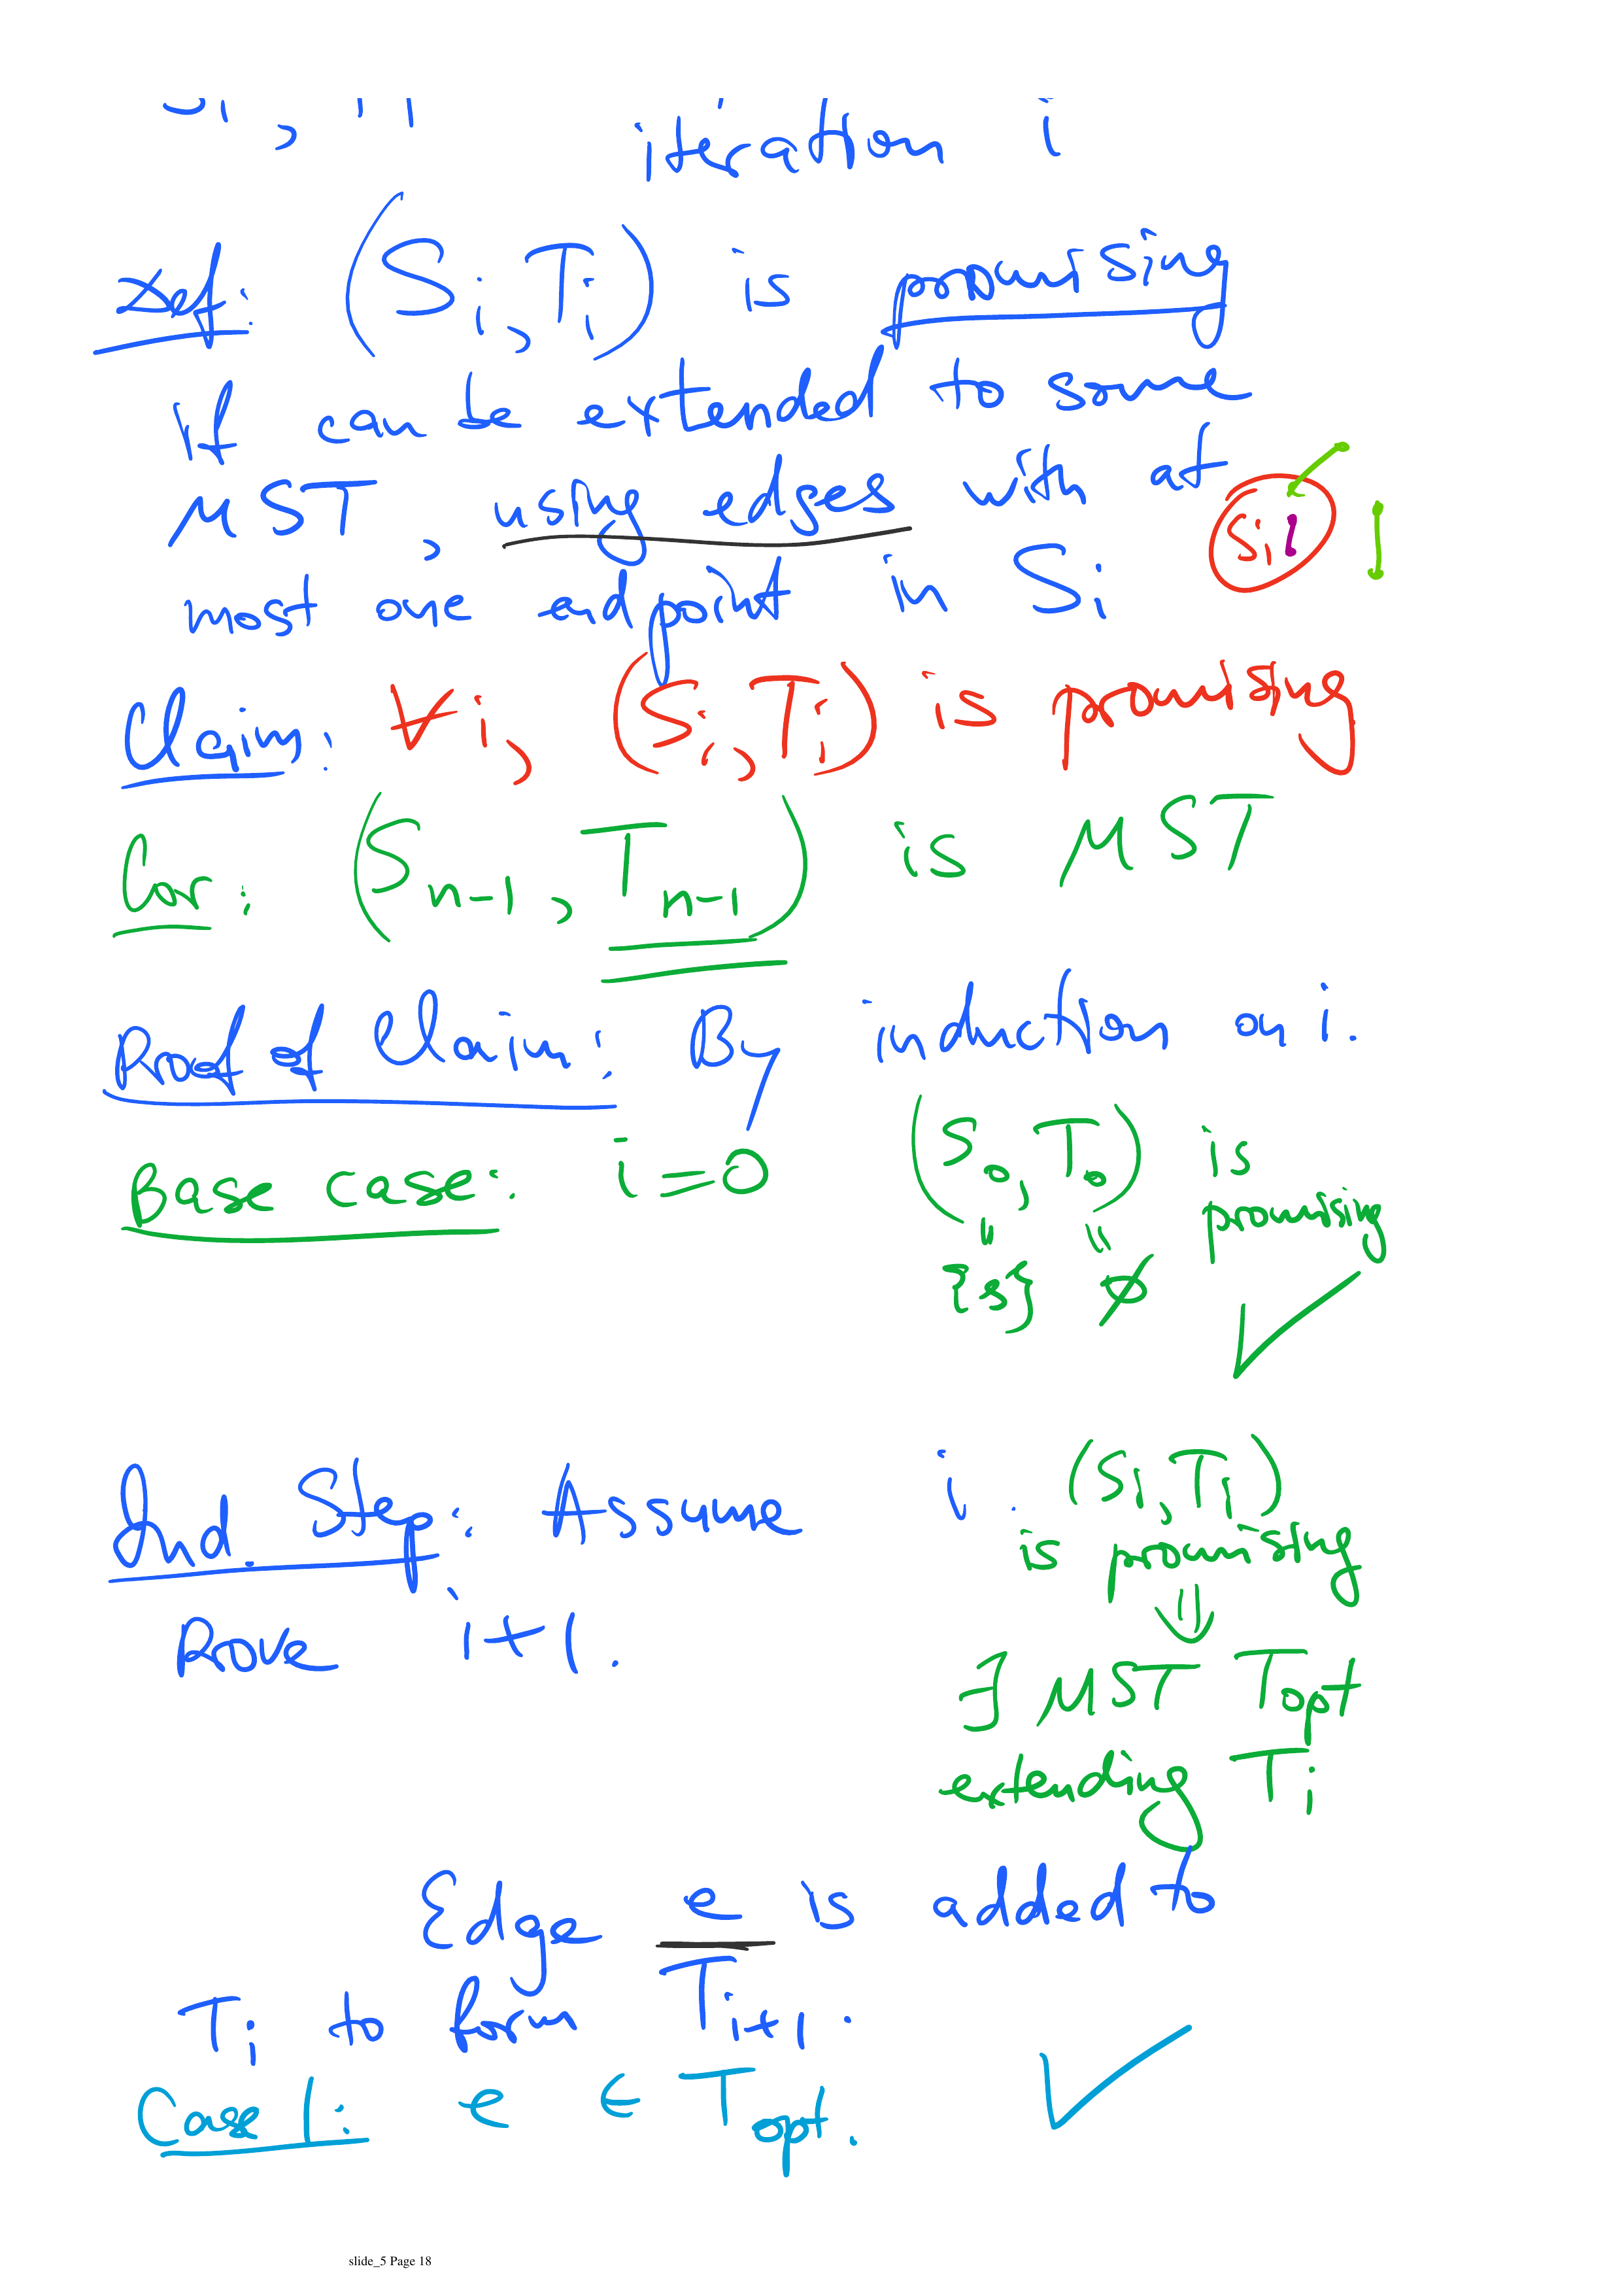 iteration i
Def: (Si, Ti) is promising
if can be extended to some
MST, using edges with at
Si
most one endpoint in Si
Claim: ∀i, (Si, Ti) is promising
Cor: (Sn-1, Tn-1) is MST
Proof of Claim: By induction on i.
Base case: i=0 (S0, T0) is
promising
{s} ∅
Ind. Step: Assume i. (Si, Ti)
is promising
⇓
Prove i+1.
∃ MST Topt
extending Ti
Edge e is added to
Ti to form Ti+1.
Case 1: e ∈ Topt.
slide_5 Page 18